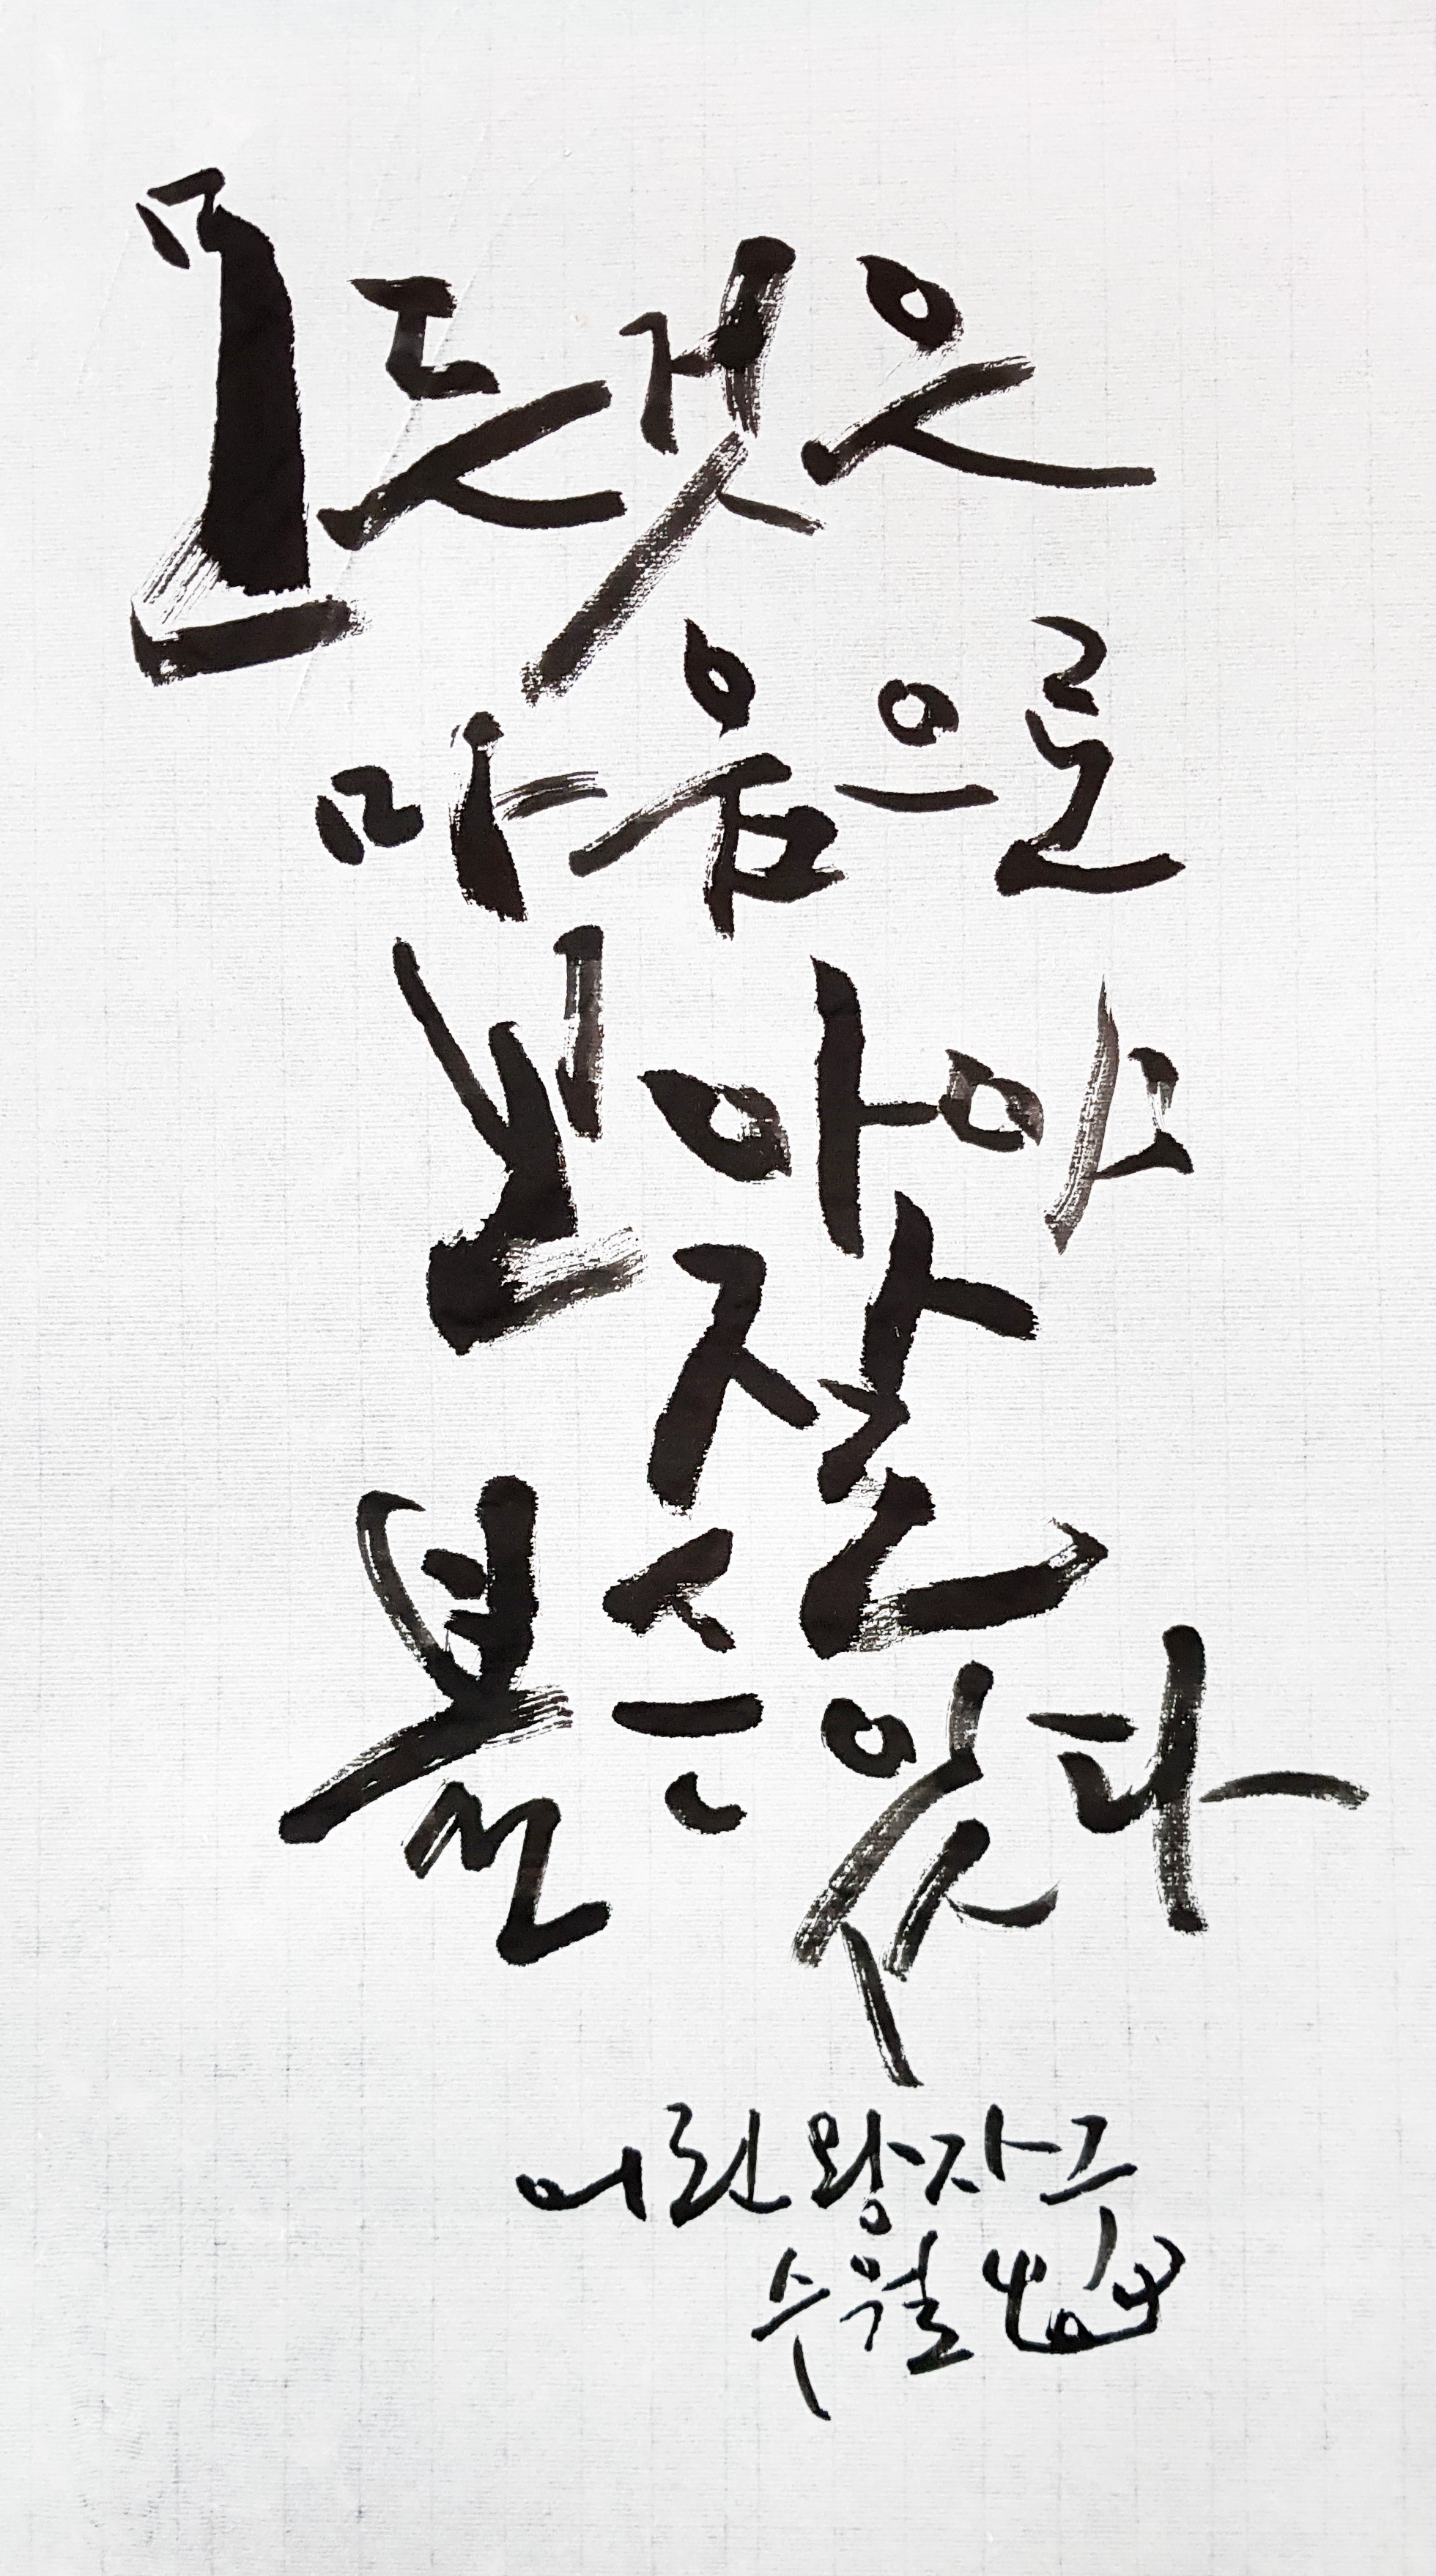 모든것은
마음으로
보아야
잘
볼 수는 있다
어린왕자 中
수월